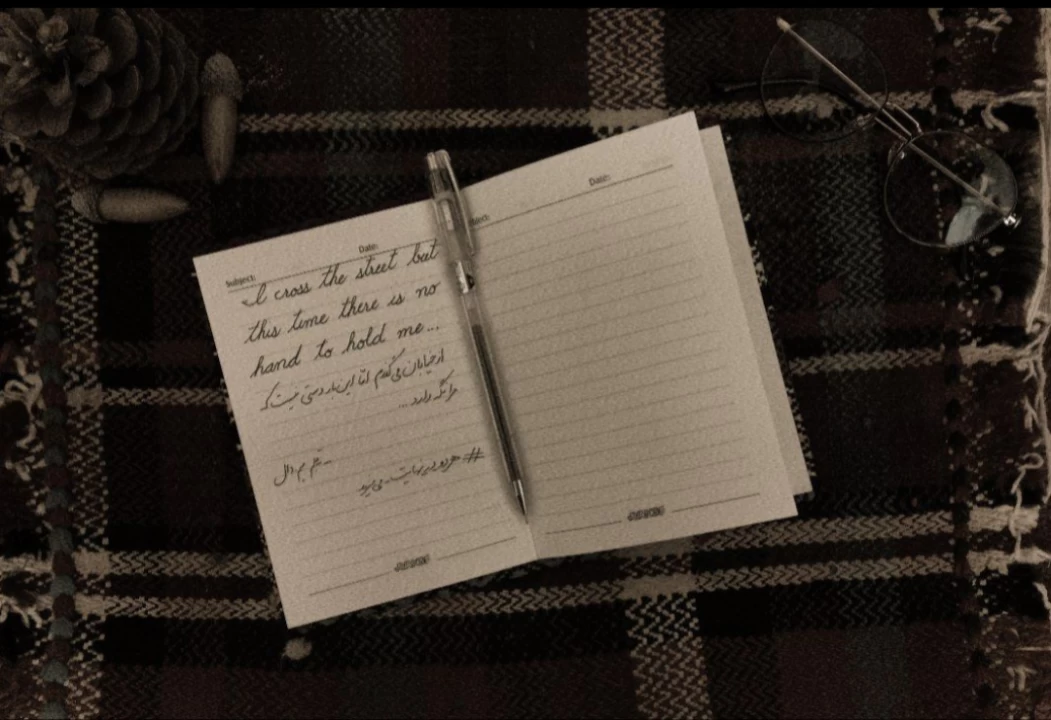 Date:
Subject:
I cross the street but
this time there is no
hand to hold me...
از خیابان می‌گذرم امّا این‌بار دستی نیست که
مرا نگه دارد...
Date: